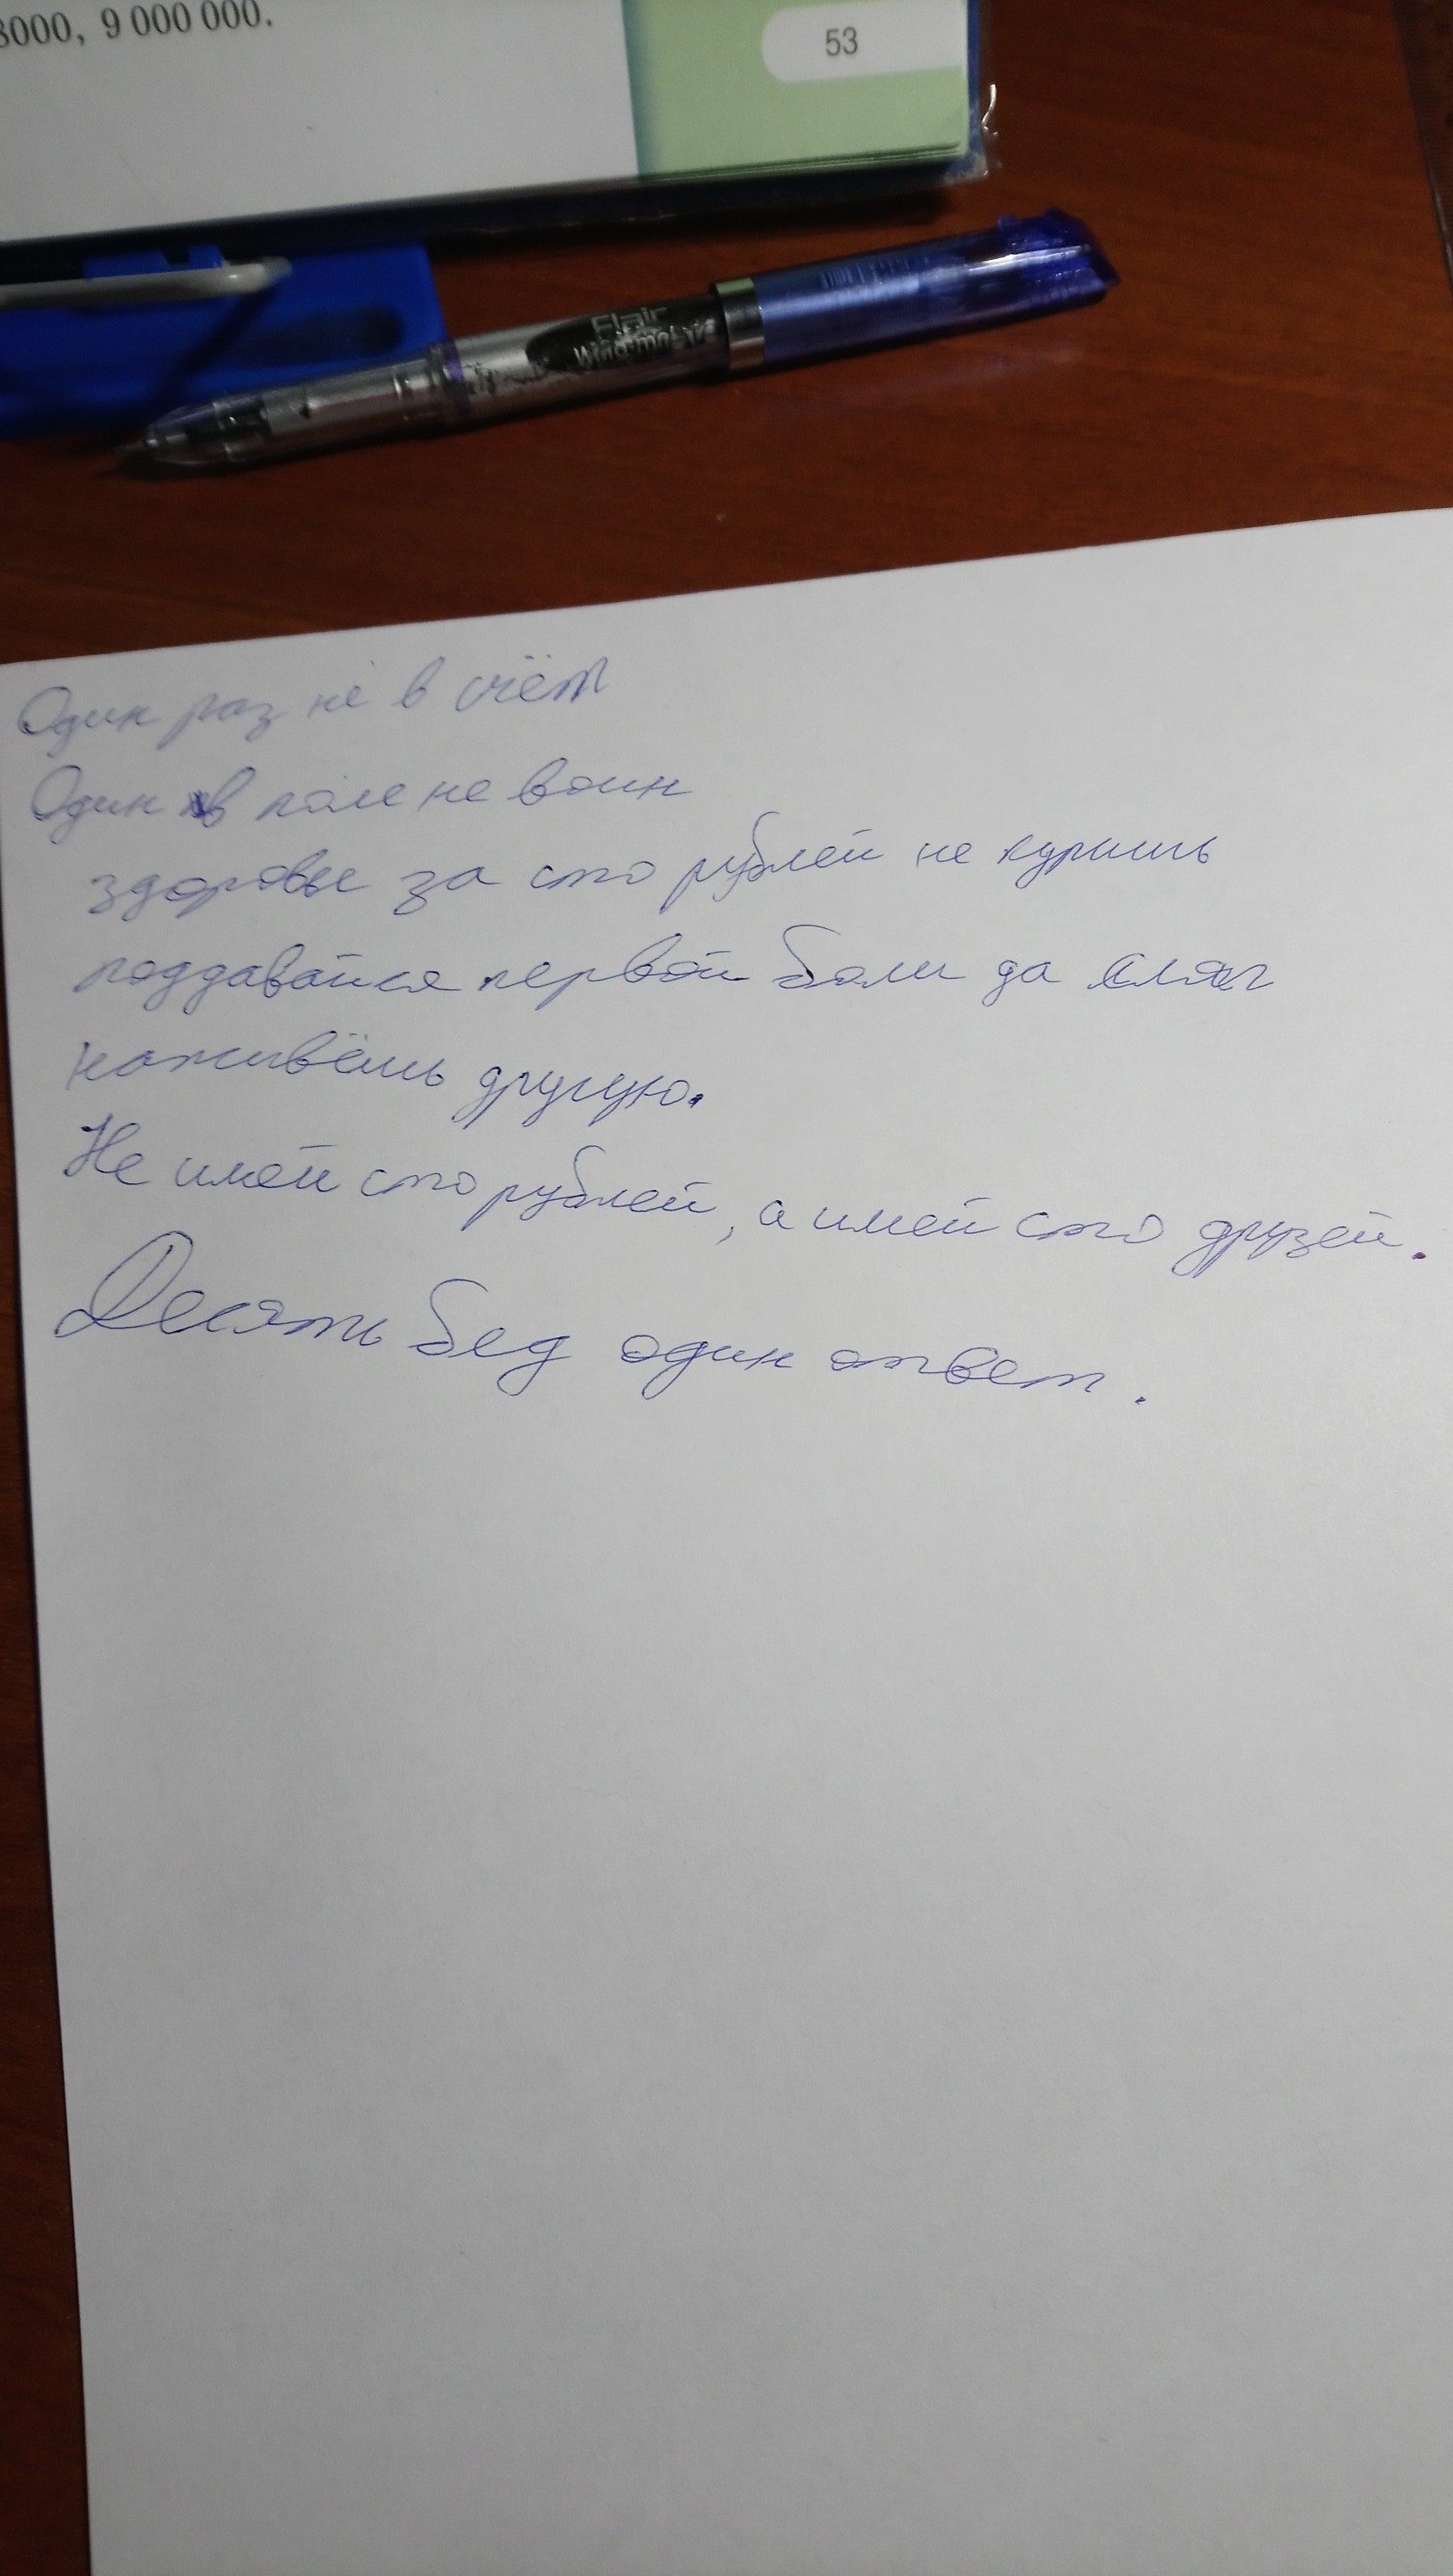 3000, 9 000 000.
53
Flair
Один раз не в счёт
Один в поле не воин
здоровье за сто рублей не купишь
поддавайся первой боли да сляг
наживёшь другую.
Не имей сто рублей, а имей сто друзей.
Десять бед один ответ.